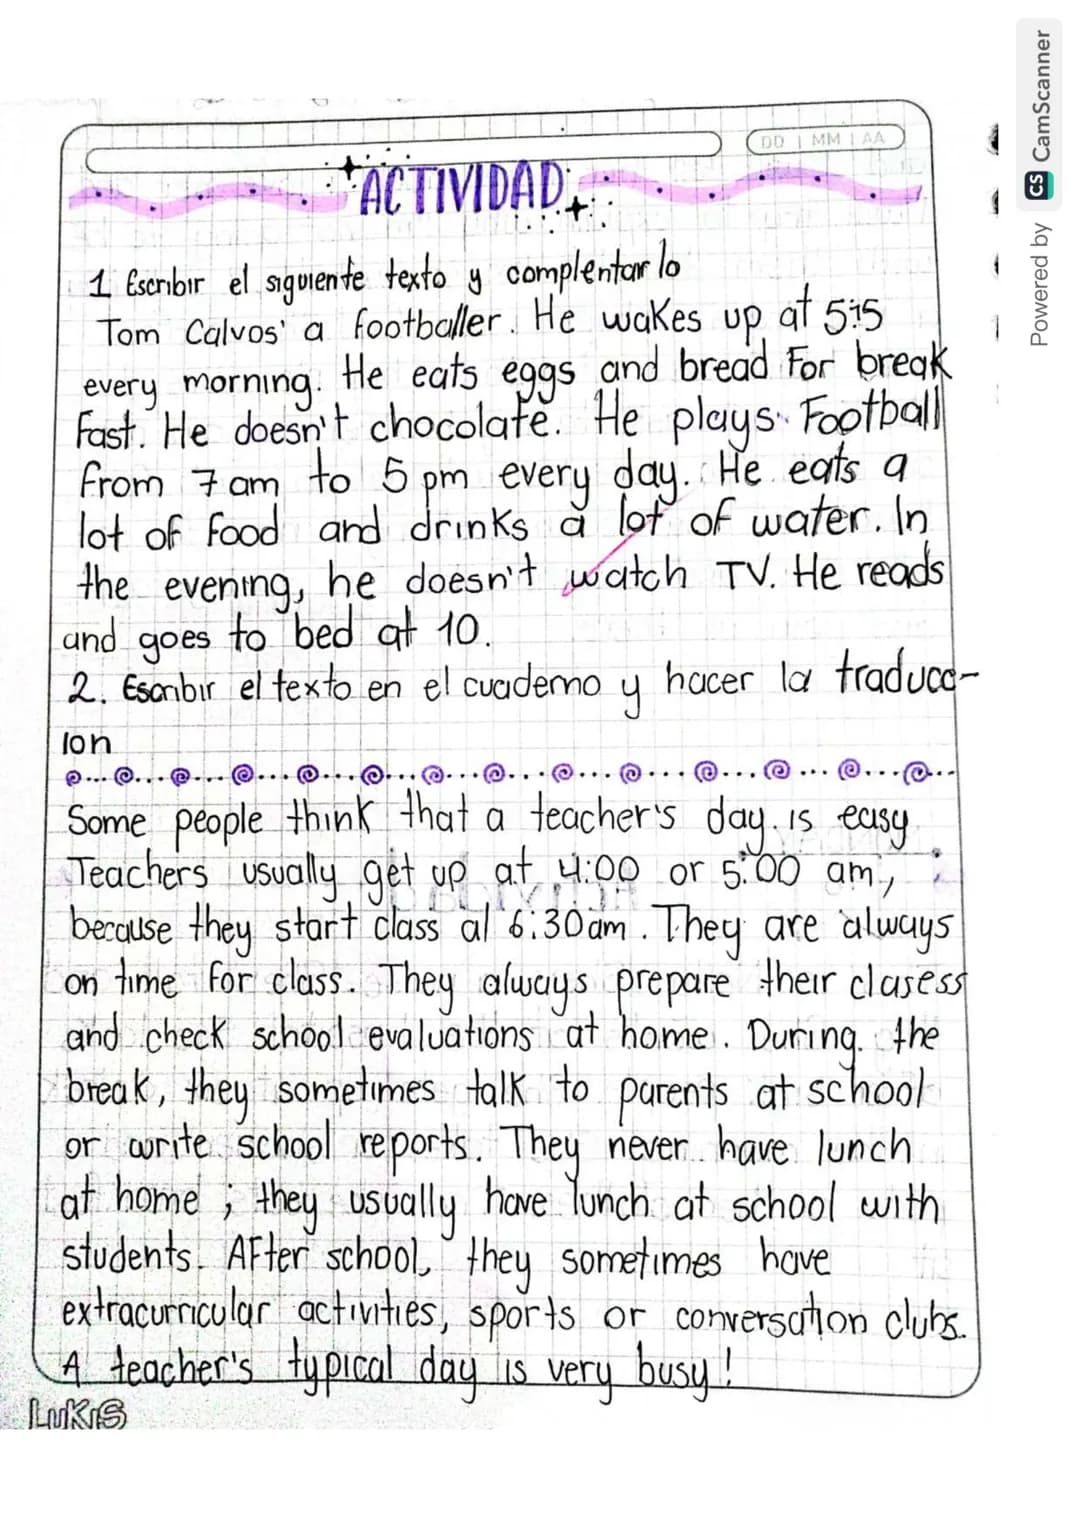 DD MM AA
ACTIVIDAD
1 Escribir el siguiente texto y complentar lo
Tom Calvos' a footballer. He wakes up at 5:15
every morning. He eats eggs and bread For break
Fast. He doesn't chocolate. He plays Football
from 7 am to 5 pm every day. He eats a
lot of food and drinks a lot of water. In
the evening, he doesn't watch TV. He reads
and goes to bed at 10.
2. Escribir el texto en el cuaderno y hacer la traducc-
ion
Some people think that a teacher's day is easy
Teachers usually get up at 4:00 or 5:00 am,
because they start class al 6:30am. They are always
on time for class. They always prepare their clasess
and check school evaluations at home. During the
break, they sometimes talk to parents at school
or write school reports. They never have lunch
at home ; they usually have lunch at school with
students. AFter school, they sometimes have
extracurricular activities, sports or conversation clubs.
A teacher's typical day is very busy!
LUKIS
Powered by CS CamScanner